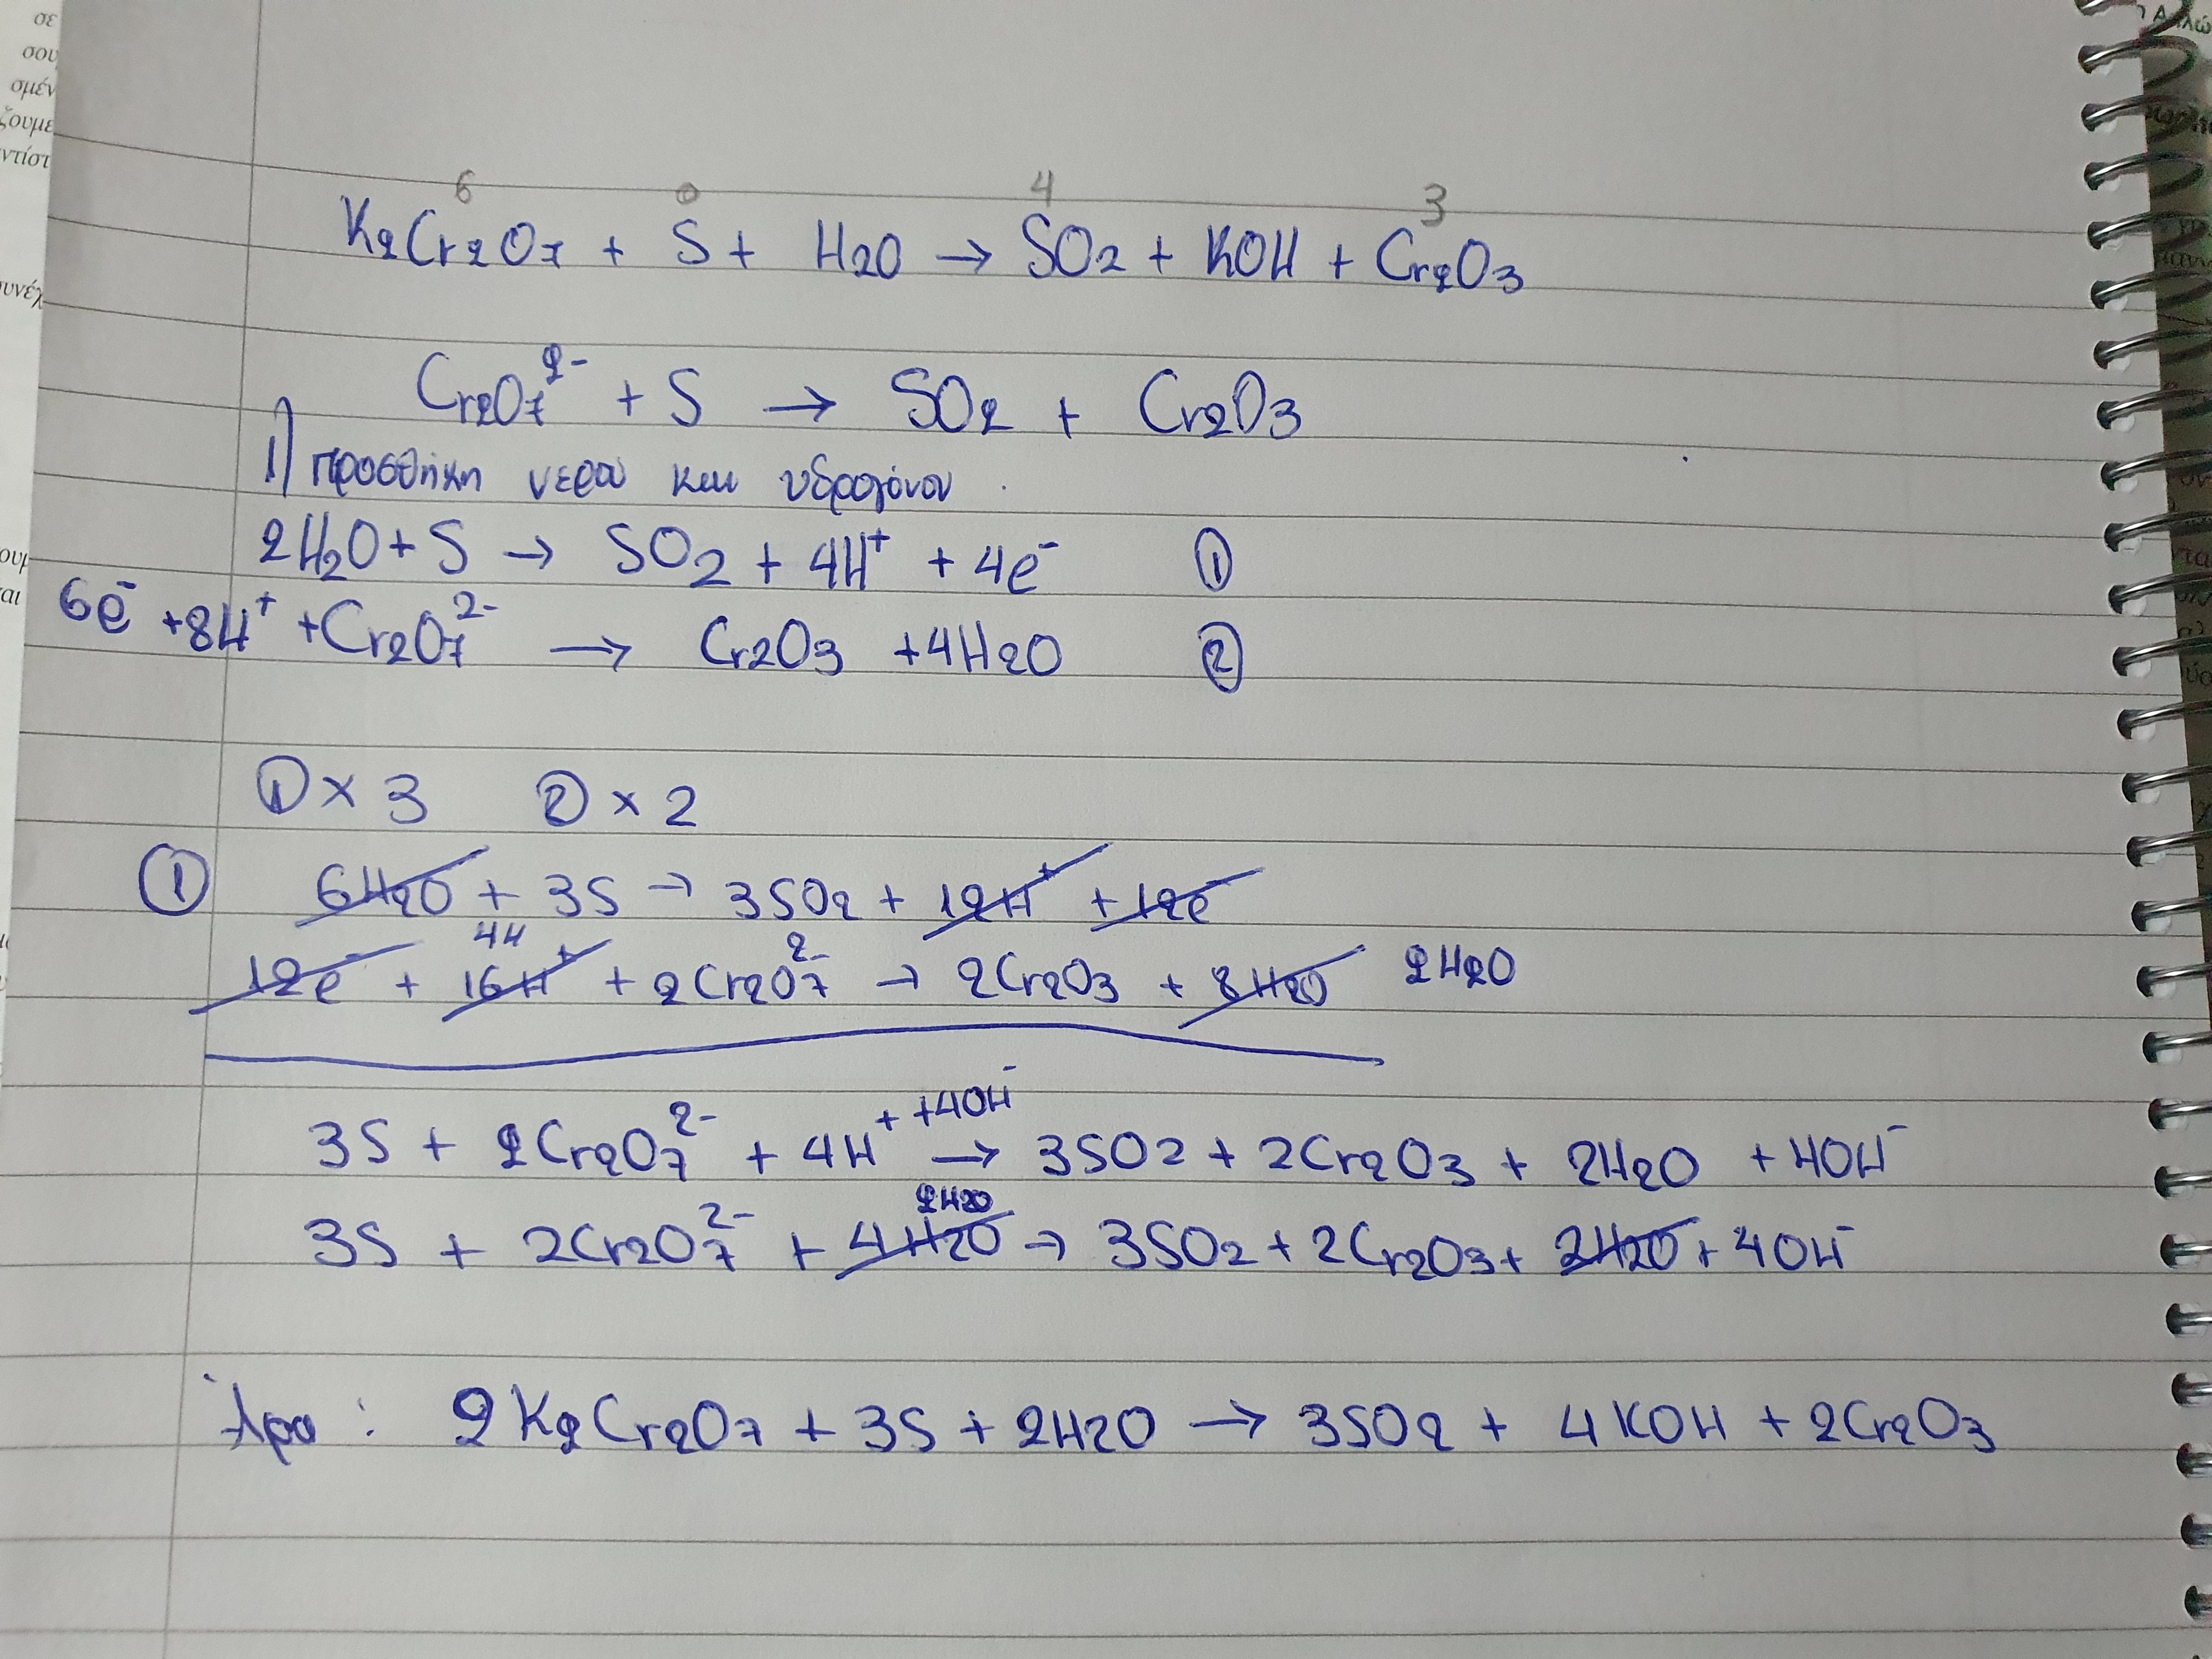 σε
σου
σμέν
ζουμε
ντίστ
υνέχ
ουμ
αι
6 0 4 3
K2Cr2O7 + S + H2O → SO2 + KOH + Cr2O3
Cr2O7^2- + S → SO2 + Cr2O3
1) προσθήκη νερού και υδρογόνου.
2H2O + S → SO2 + 4H+ + 4e- ①
6e- + 8H+ + Cr2O7^2- → Cr2O3 + 4H2O ②
① × 3 ② × 2
① 6H2O + 3S → 3SO2 + 12H+ + 12e-
4H
12e- + 16H+ + 2Cr2O7^2- → 2Cr2O3 + 8H2O 2H2O
+4OH-
3S + 2Cr2O7^2- + 4H+ → 3SO2 + 2Cr2O3 + 2H2O + 4OH-
2H2O
3S + 2Cr2O7^2- + 4H2O → 3SO2 + 2Cr2O3 + 2H2O + 4OH-
Άρα : 2K2Cr2O7 + 3S + 2H2O → 3SO2 + 4KOH + 2Cr2O3